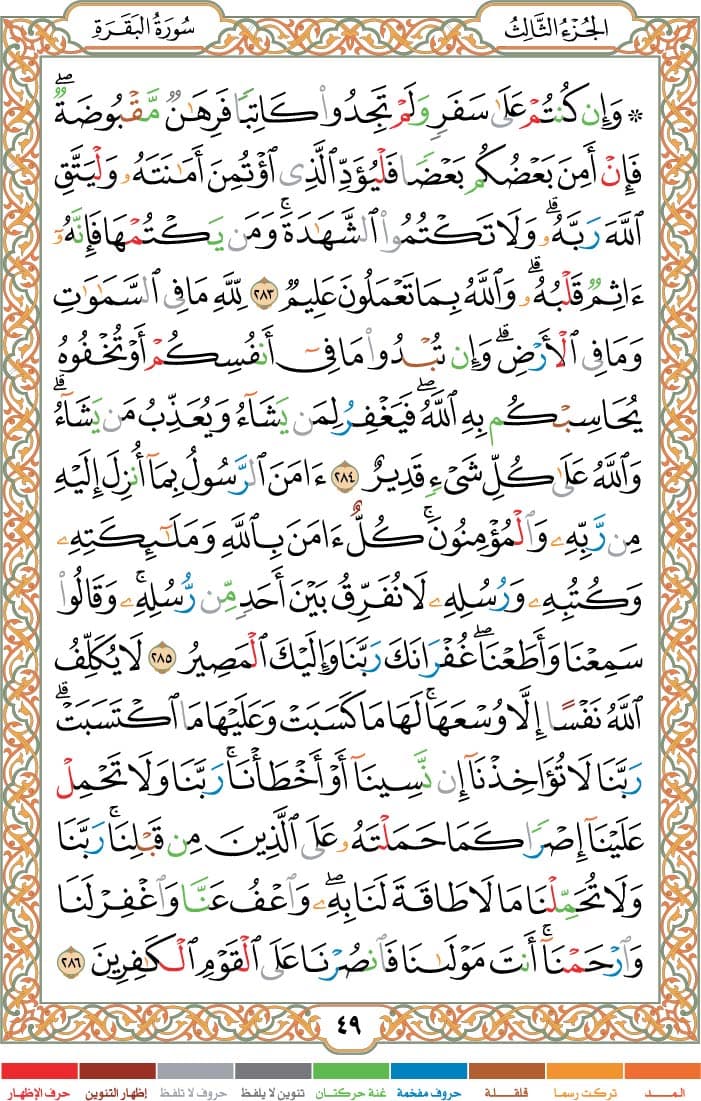 الجُزْءُ الثَّالِثُ
سُورَةُ البَقَرَةِ
۞ وَإِن كُنتُمْ عَلَىٰ سَفَرٍ وَلَمْ تَجِدُوا۟ كَاتِبًا فَرِهَـٰنٌ مَّقْبُوضَةٌ ۖ
فَإِنْ أَمِنَ بَعْضُكُم بَعْضًا فَلْيُؤَدِّ ٱلَّذِى ٱؤْتُمِنَ أَمَـٰنَتَهُۥ وَلْيَتَّقِ
ٱللَّهَ رَبَّهُۥ ۗ وَلَا تَكْتُمُوا۟ ٱلشَّهَـٰدَةَ ۚ وَمَن يَكْتُمْهَا فَإِنَّهُۥٓ
ءَاثِمٌ قَلْبُهُۥ ۗ وَٱللَّهُ بِمَا تَعْمَلُونَ عَلِيمٌ ٢٨٣ لِّلَّهِ مَا فِى ٱلسَّمَـٰوَٰتِ
وَمَا فِى ٱلْأَرْضِ ۗ وَإِن تُبْدُوا۟ مَا فِىٓ أَنفُسِكُمْ أَوْ تُخْفُوهُ
يُحَاسِبْكُم بِهِ ٱللَّهُ ۖ فَيَغْفِرُ لِمَن يَشَآءُ وَيُعَذِّبُ مَن يَشَآءُ ۗ
وَٱللَّهُ عَلَىٰ كُلِّ شَىْءٍ قَدِيرٌ ٢٨٤ ءَامَنَ ٱلرَّسُولُ بِمَآ أُنزِلَ إِلَيْهِ
مِن رَّبِّهِۦ وَٱلْمُؤْمِنُونَ ۚ كُلٌّ ءَامَنَ بِٱللَّهِ وَمَلَـٰٓئِكَتِهِۦ
وَكُتُبِهِۦ وَرُسُلِهِۦ لَا نُفَرِّقُ بَيْنَ أَحَدٍ مِّن رُّسُلِهِۦ ۚ وَقَالُوا۟
سَمِعْنَا وَأَطَعْنَا ۖ غُفْرَانَكَ رَبَّنَا وَإِلَيْكَ ٱلْمَصِيرُ ٢٨٥ لَا يُكَلِّفُ
ٱللَّهُ نَفْسًا إِلَّا وُسْعَهَا ۚ لَهَا مَا كَسَبَتْ وَعَلَيْهَا مَا ٱكْتَسَبَتْ ۗ
رَبَّنَا لَا تُؤَاخِذْنَآ إِن نَّسِينَآ أَوْ أَخْطَأْنَا ۚ رَبَّنَا وَلَا تَحْمِلْ
عَلَيْنَآ إِصْرًا كَمَا حَمَلْتَهُۥ عَلَى ٱلَّذِينَ مِن قَبْلِنَا ۚ رَبَّنَا
وَلَا تُحَمِّلْنَا مَا لَا طَاقَةَ لَنَا بِهِۦ ۖ وَٱعْفُ عَنَّا وَٱغْفِرْ لَنَا
وَٱرْحَمْنَآ ۚ أَنتَ مَوْلَىٰنَا فَٱنصُرْنَا عَلَى ٱلْقَوْمِ ٱلْكَـٰفِرِينَ ٢٨٦
٤٩
المـــد تركت رسما قلقـلة حروف مفخمة غنة حركتان تنوين لا يلفظ حروف لا تلفظ إظهار التنوين حرف الإظهار